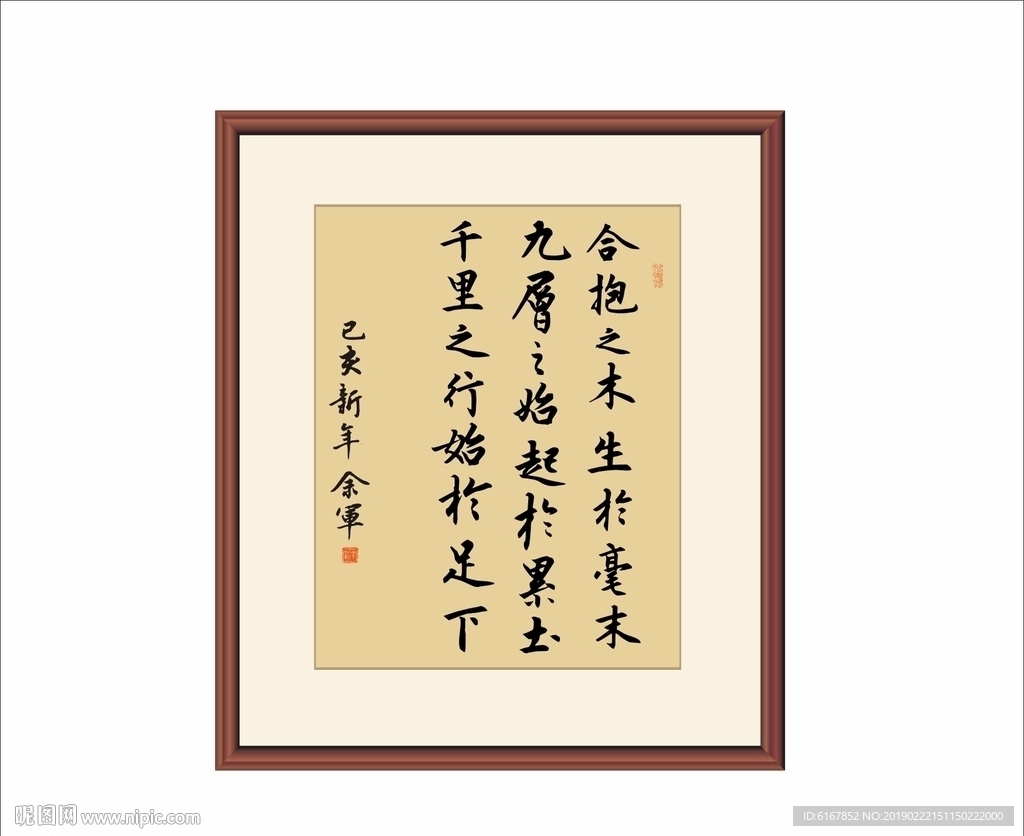 合抱之木生於毫末
九層之始起於累土
千里之行始於足下
己亥新年 余軍
昵图网 www.nipic.com
ID:6167852 NO:20190222151150222000